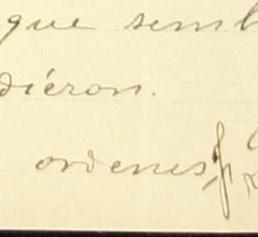 que semb
diéron.
ordenes